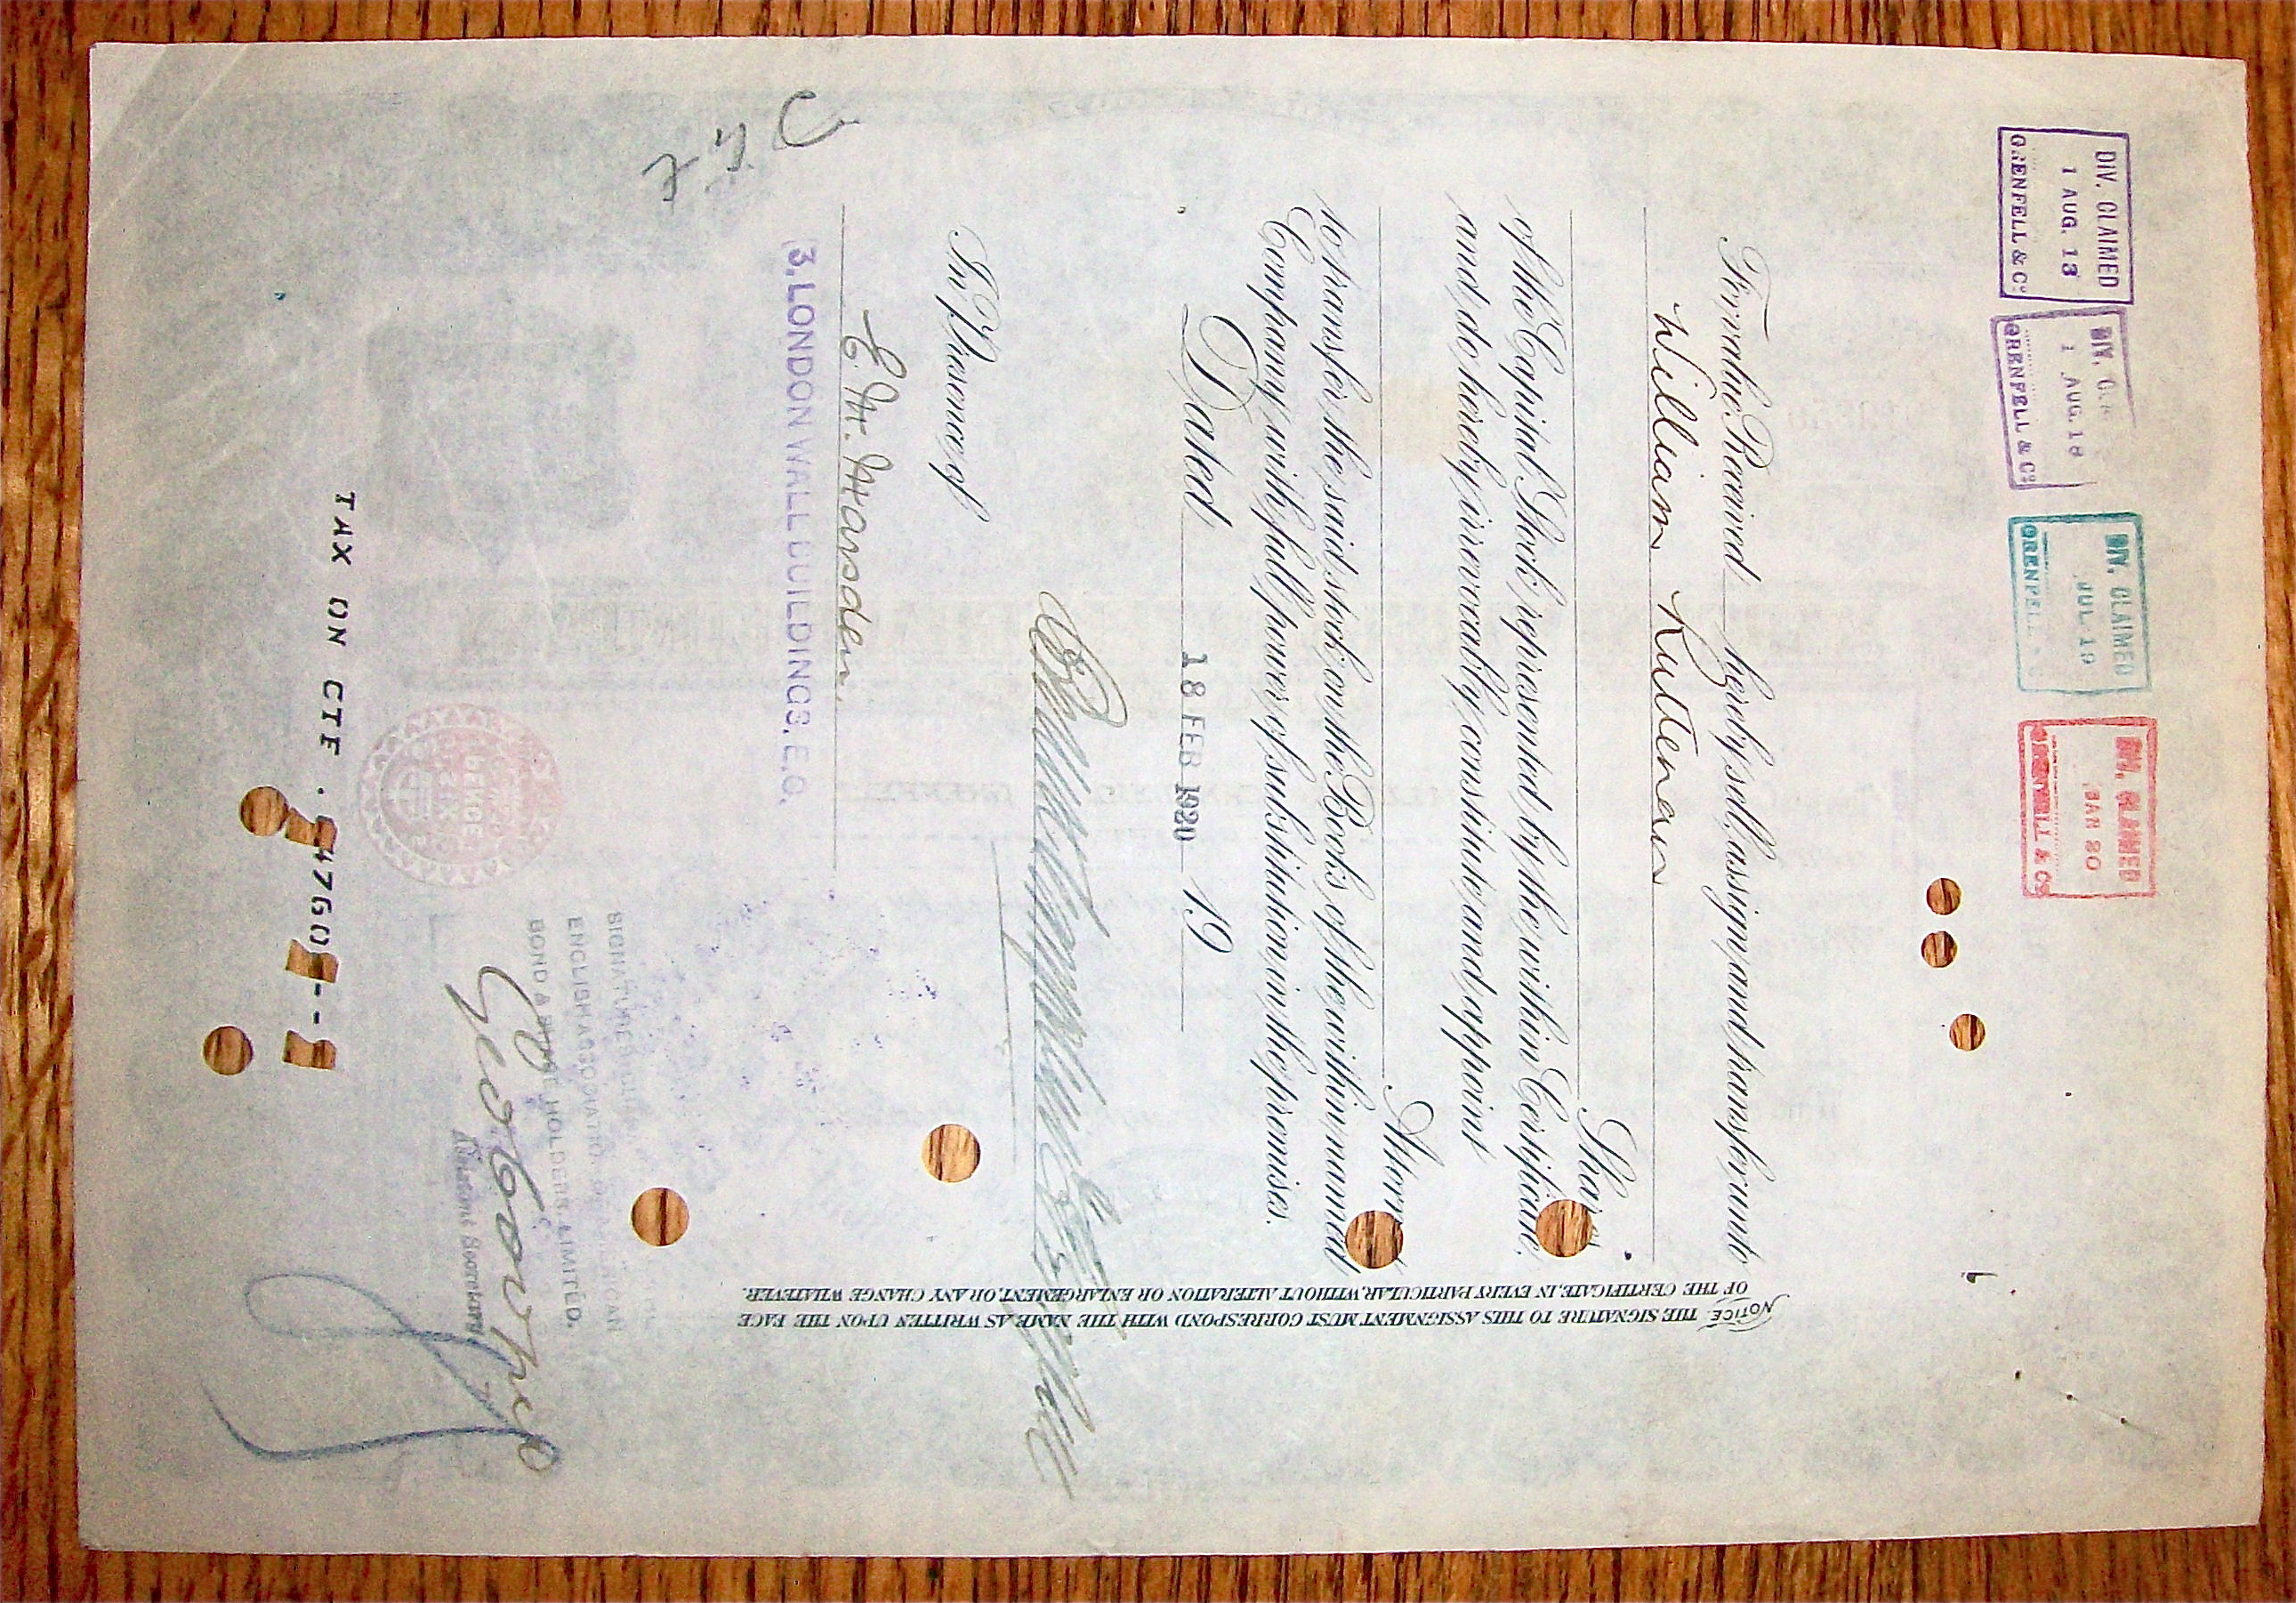 DIV. CLAIMED
1 AUG. 13
GRENFELL & Co
DIV.
1 AUG. 18
GRENFELL & Co
DIV. CLAIMED
JUL. 19
GRENFELL
DIV. CLAIMED
MAR 20
GRENFELL & Co
For value Received hereby sell, assign and transfer unto
William Ruttenau
Shares
of the Capital Stock represented by the within Certificate,
and do hereby irrevocably constitute and appoint
Attorney
to transfer the said stock on the Books of the within named
Company with full power of substitution in the premises.
Dated 18 FEB 1920 19
In Presence of
E. M. Marsden
3, LONDON WALL BUILDINGS, E.C.
SIGNATURE
ENGLISH ASSOCIATION OF AMERICAN
BOND & SHARE HOLDERS, LIMITED.
Assistant Secretary
TAX ON CTF.
NOTICE. THE SIGNATURE TO THIS ASSIGNMENT MUST CORRESPOND WITH THE NAME AS WRITTEN UPON THE FACE
OF THE CERTIFICATE, IN EVERY PARTICULAR, WITHOUT ALTERATION OR ENLARGEMENT, OR ANY CHANGE WHATEVER.